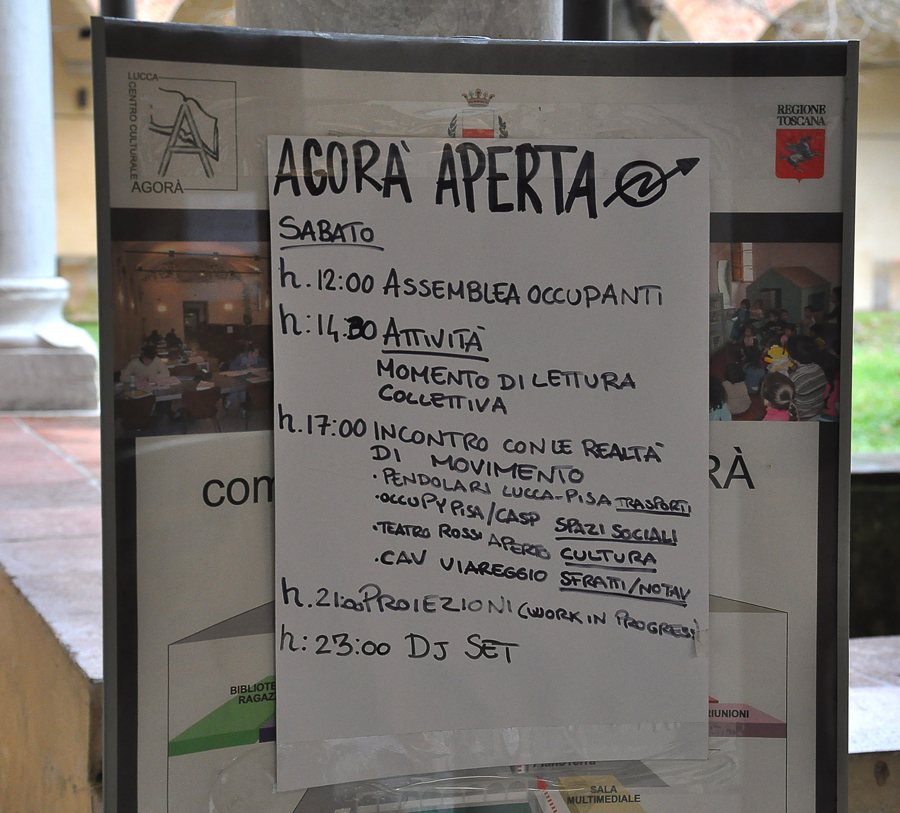 LUCCA
CENTRO CULTURALE
AGORÀ
REGIONE
TOSCANA
AGORA' APERTA
SABATO
h. 12:00 ASSEMBLEA OCCUPANTI
h: 14,30 ATTIVITÀ
MOMENTO DI LETTURA
COLLETTIVA
h. 17:00 INCONTRO CON LE REALTA'
DI MOVIMENTO
• PENDOLARI LUCCA-PISA TRASPORTI
• OCCUPY PISA/CASP SPAZI SOCIALI
• TEATRO ROSSI APERTO CULTURA
• CAV VIAREGGIO SFRATTI/NOTAV
h. 21:00 PROIEZIONI (WORK IN PROGRESS)
h: 23:00 DJ SET
com
RÀ
BIBLIOTE
RAGAZ
RIUNIONI
SALA
MULTIMEDIALE